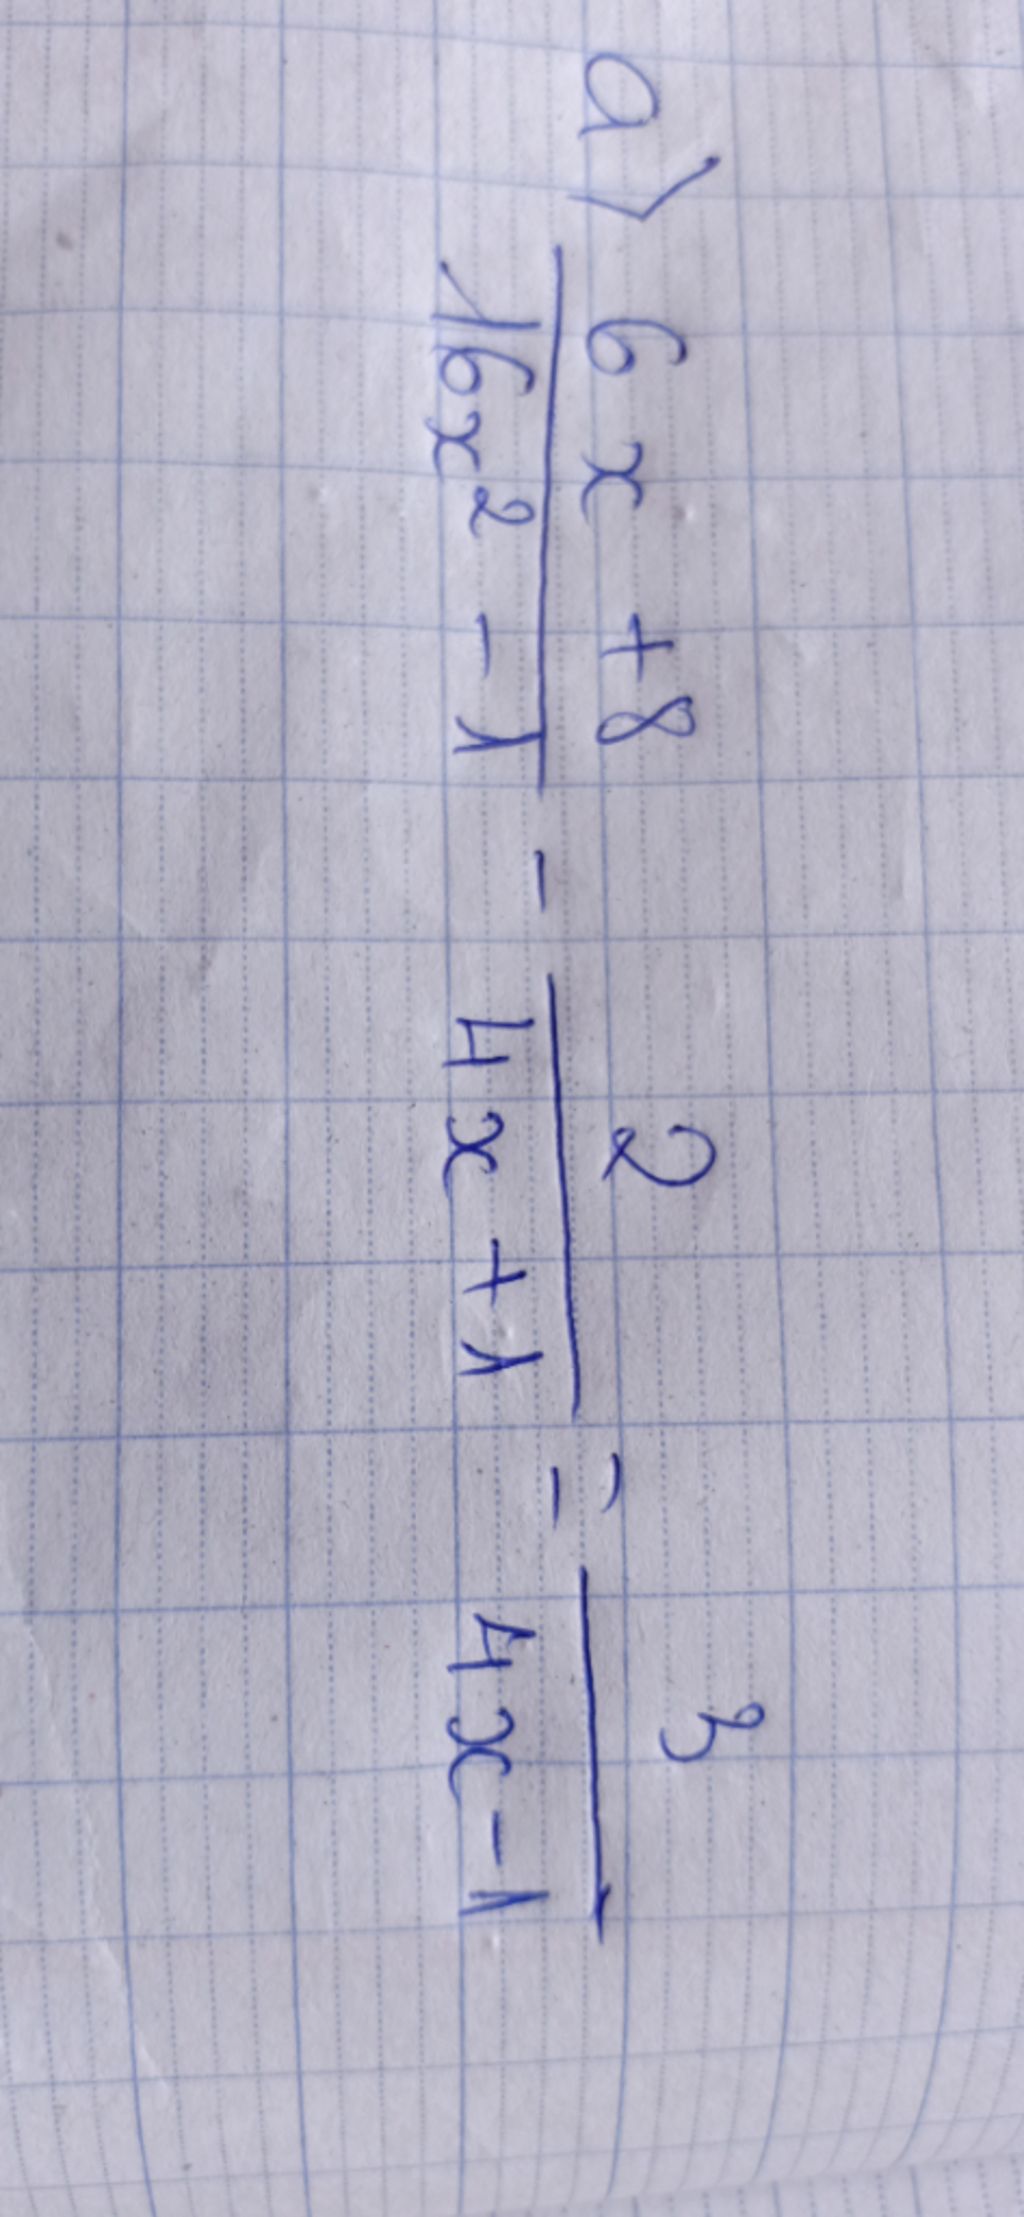 a) \frac{6x+8}{16x^2-1} - \frac{2}{4x+1} = \frac{3}{4x-1}